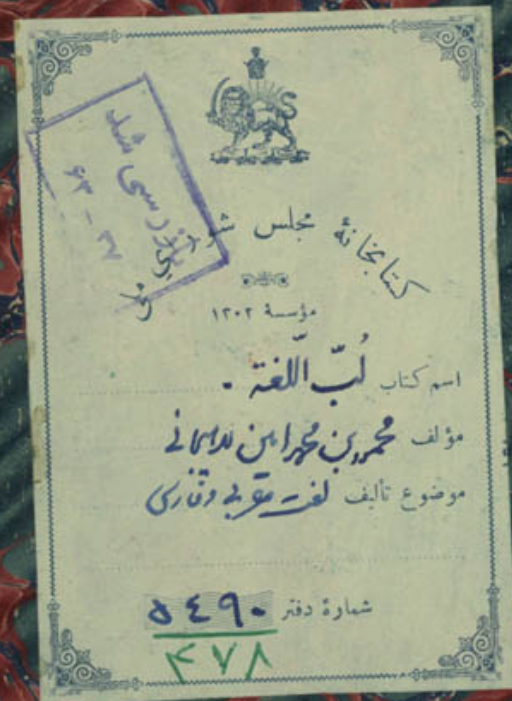 بازرسی شد
۶۳ - ۳۷
کتابخانهٔ مجلس شورای ملی
مؤسسهٔ ۱۳۰۲
اسم کتاب لُبّ اللّغة .
مؤلف محمود بن محمد امین
موضوع تألیف لغت عربی و فارسی
شمارهٔ دفتر ۵٤۹۰
۴۷۸